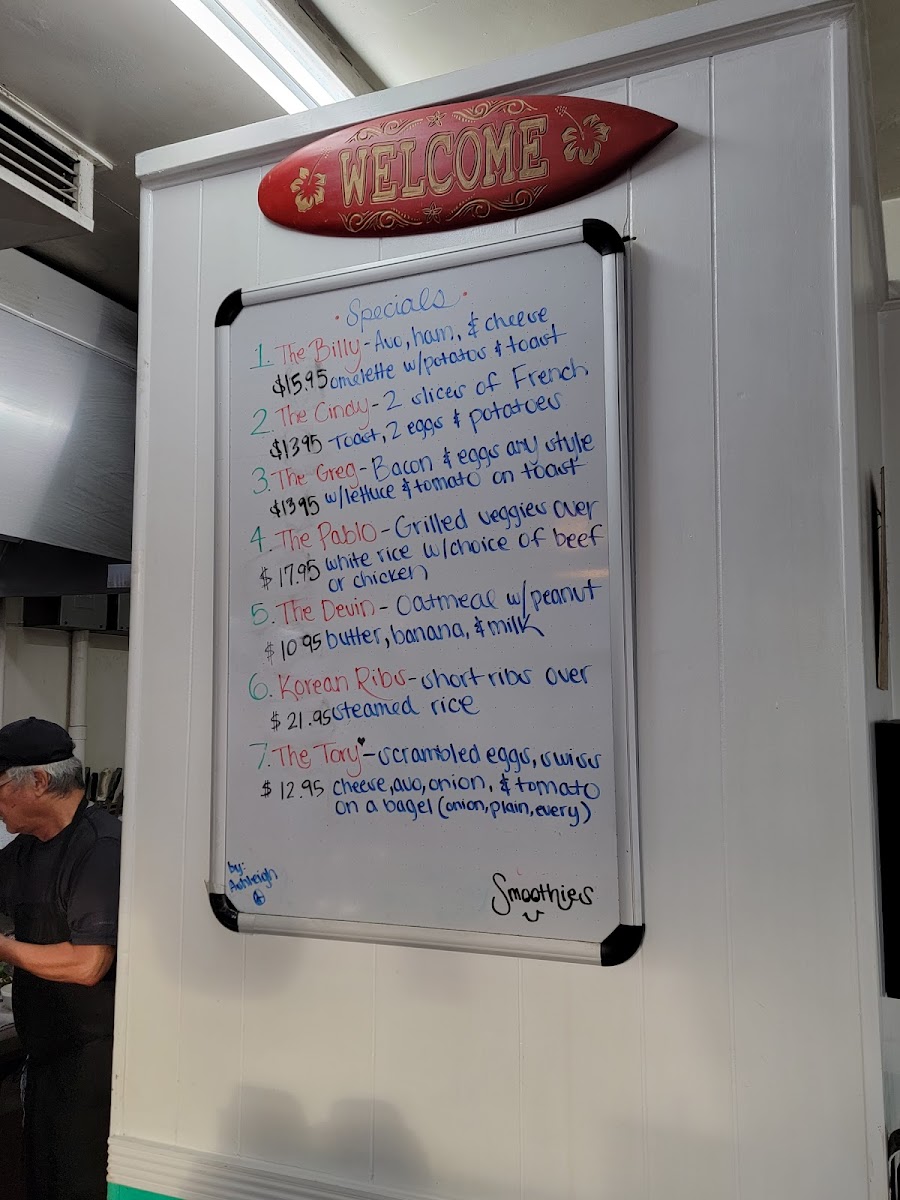 WELCOME
Specials
1. The Billy - Avo, ham, & cheese
$15.95 omelette w/potatos & toast
2. The Cindy - 2 slices of French
$13.95 Toast, 2 eggs & potatoes
3. The Greg - Bacon & eggs any style
$13.95 w/lettuce & tomato on toast
4. The Pablo - Grilled veggies over
$17.95 white rice w/choice of beef
or chicken
5. The Devin - Oatmeal w/peanut
$10.95 butter, banana, & milk
6. Korean Ribs - short ribs over
$21.95 steamed rice
7. The Tory♥ - scrambled eggs, swiss
$12.95 cheese, avo, onion, & tomato
on a bagel (onion, plain, every)
by:
Ashleigh
Smoothies